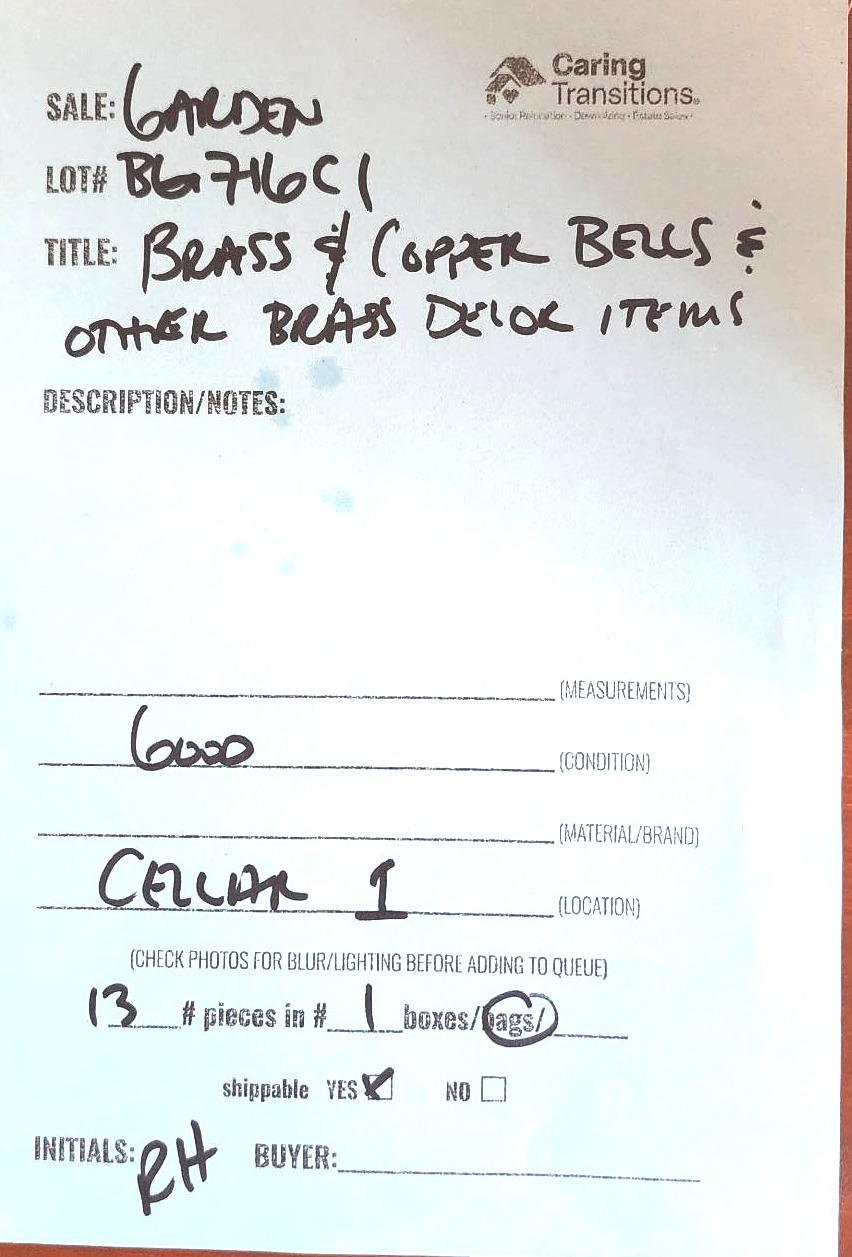 Caring
Transitions®
• Senior Relocation • Downsizing • Estate Sales •
SALE: GARDEN
LOT# BG716C1
TITLE: BRASS & COPPER BELLS &
OTHER BRASS DECOR ITEMS
DESCRIPTION/NOTES:
(MEASUREMENTS)
GOOD (CONDITION)
(MATERIAL/BRAND)
CELLAR 1 (LOCATION)
(CHECK PHOTOS FOR BLUR/LIGHTING BEFORE ADDING TO QUEUE)
13 # pieces in # 1 boxes/bags/
shippable YES NO
INITIALS: RH BUYER: